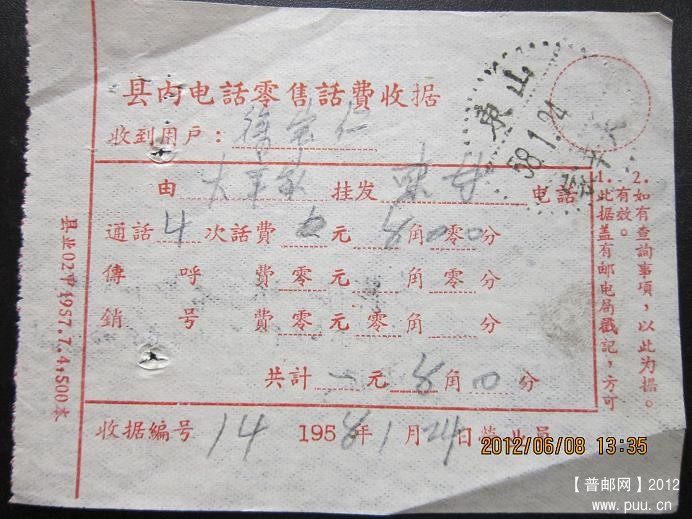 县内电話零售話費收据
收到用戶：徐
由 大 挂发 東 电話
通話 4 次話費 元 8 角 零0 分
傳呼費 零 元 角 零 分
銷号費 零 元 零 角 分
共計 一 元 8 角 0 分
收据編号 14 1958年1月24日營业員
1. 此据盖有邮电局戳記，方可有效。
2. 如有查詢事項，以此为据。
县业02甲1957.7.4,500本
東山
58.1.24
2012/06/08 13:35
【普邮网】2012
www.puu.cn